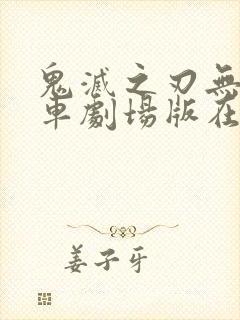 鬼滅之刃無
車劇場版在
姜子牙